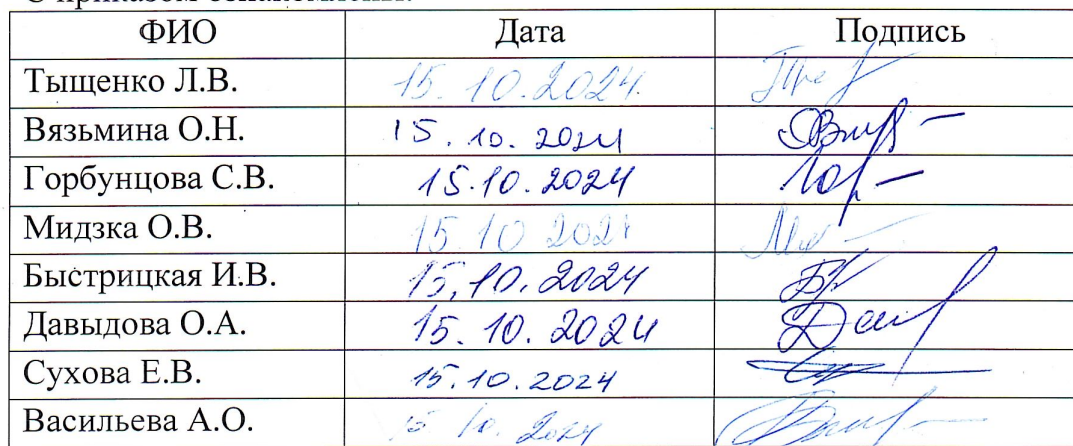 ФИО Дата Подпись
Тыщенко Л.В. 15.10.2024.
Вязьмина О.Н. 15.10.2024
Горбунцова С.В. 15.10.2024
Мидзка О.В. 15.10 2024
Быстрицкая И.В. 15.10.2024
Давыдова О.А. 15.10.2024
Сухова Е.В. 15.10.2024
Васильева А.О. 15 10. 2024